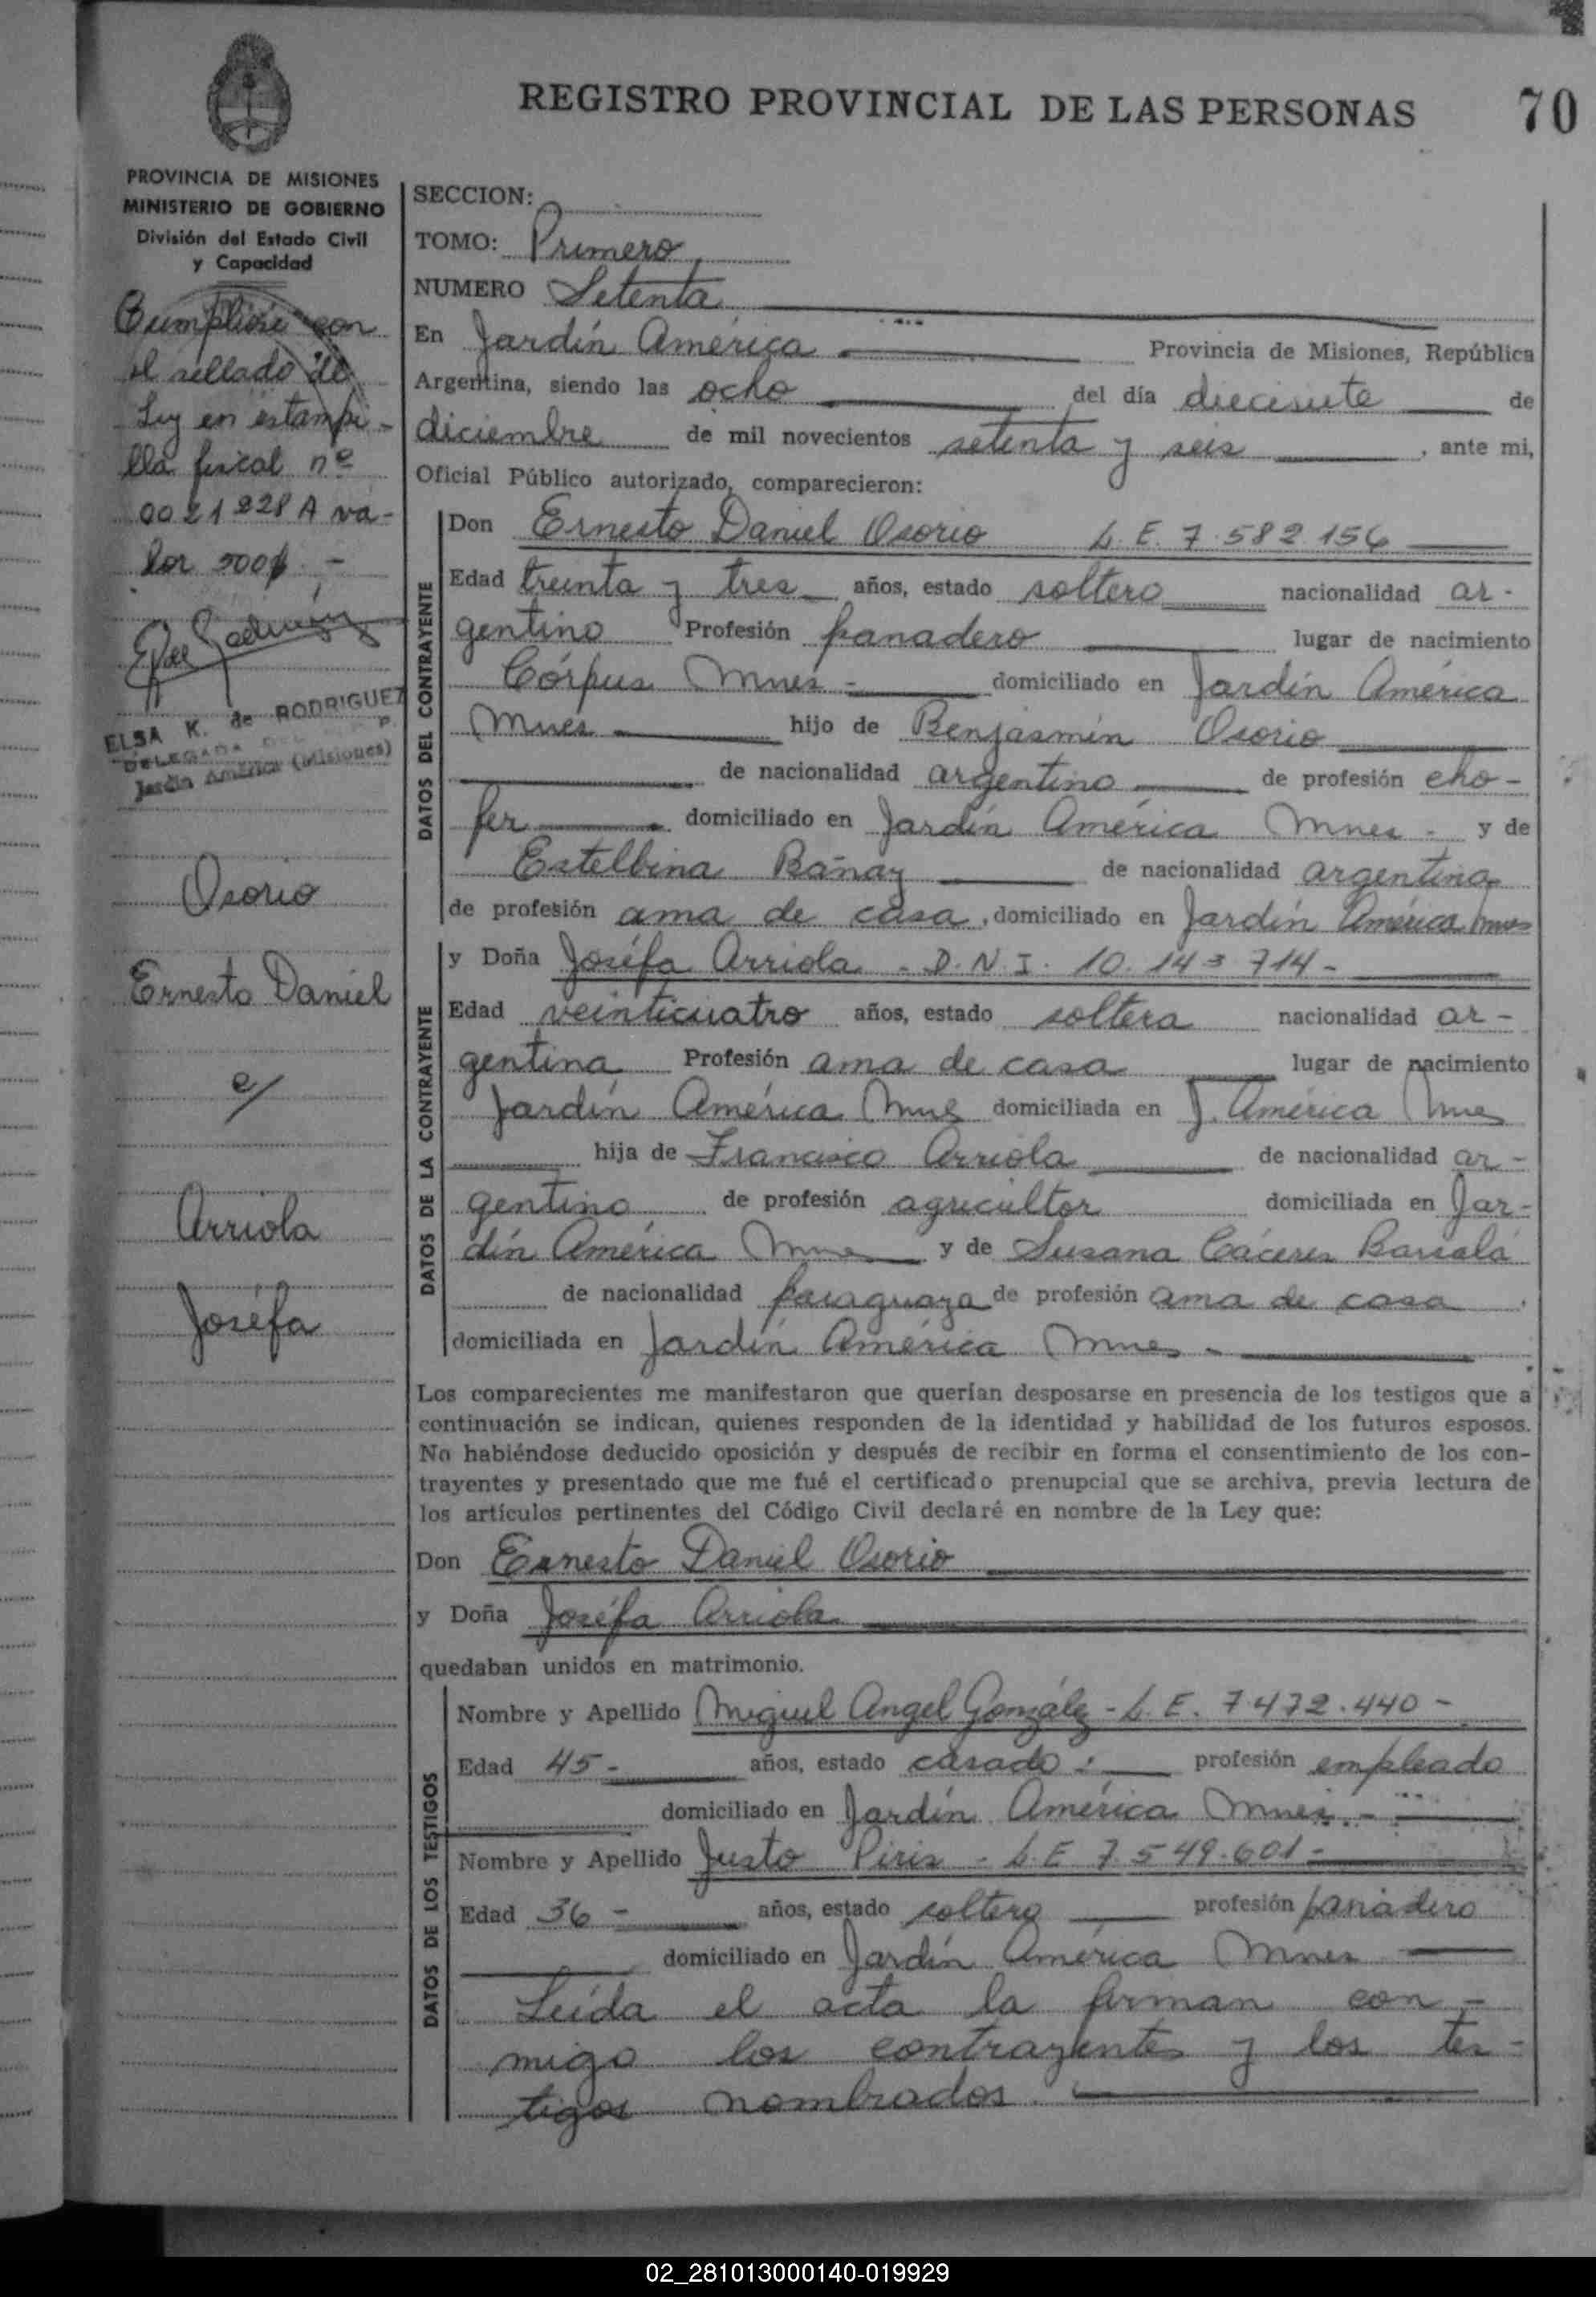 REGISTRO PROVINCIAL DE LAS PERSONAS
70
PROVINCIA DE MISIONES
MINISTERIO DE GOBIERNO
División del Estado Civil
y Capacidad
Cumplióse con
el sellado de
Ley en estampi-
lla fiscal nº
0021228 A va-
lor 500$.-
ELSA K. de RODRIGUEZ
DELEGADA DEL R. P.
Jardín América (Misiones)
Osorio
Ernesto Daniel
c/
Arriola
Joséfa
SECCION:
TOMO: Primero
NUMERO Setenta
En Jardín América Provincia de Misiones, República
Argentina, siendo las ocho del día diecisiete de
diciembre de mil novecientos setenta y seis, ante mi,
Oficial Público autorizado, comparecieron:
DATOS DEL CONTRAYENTE
Don Ernesto Daniel Osorio L. E. 7.582.156
Edad treinta y tres años, estado soltero nacionalidad ar-
gentino Profesión panadero lugar de nacimiento
Córpus Mnes - domiciliado en Jardín América
Mnes hijo de Benjasmín Osorio
de nacionalidad argentino de profesión cho-
fer domiciliado en Jardín América Mnes - y de
Estelbina Bañay de nacionalidad argentina
de profesión ama de casa, domiciliado en Jardín América Mnes
DATOS DE LA CONTRAYENTE
y Doña Joséfa Arriola - D.N.I. 10.143.714-
Edad veinticuatro años, estado soltera nacionalidad ar-
gentina Profesión ama de casa lugar de nacimiento
Jardín América Mnes domiciliada en J. América Mnes
hija de Francisco Arriola de nacionalidad ar-
gentino de profesión agricultor domiciliada en Jar-
dín América Mnes y de Susana Cáceres Barsalá
de nacionalidad paraguaya de profesión ama de casa
domiciliada en Jardín América Mnes -
Los comparecientes me manifestaron que querían desposarse en presencia de los testigos que a
continuación se indican, quienes responden de la identidad y habilidad de los futuros esposos.
No habiéndose deducido oposición y después de recibir en forma el consentimiento de los con-
trayentes y presentado que me fué el certificado prenupcial que se archiva, previa lectura de
los artículos pertinentes del Código Civil declaré en nombre de la Ley que:
Don Ernesto Daniel Osorio
y Doña Joséfa Arriola
quedaban unidos en matrimonio.
DATOS DE LOS TESTIGOS
Nombre y Apellido Miguel Angel González - L. E. 7.472.440 -
Edad 45 - años, estado casado - profesión empleado
domiciliado en Jardín América Mnes -
Nombre y Apellido Justo Piris - L. E 7.549.601 -
Edad 36 - años, estado soltero profesión panadero
domiciliado en Jardín América Mnes
Leída el acta la firman con-
migo los contrayentes y los tes-
tigos nombrados.
02_281013000140-019929